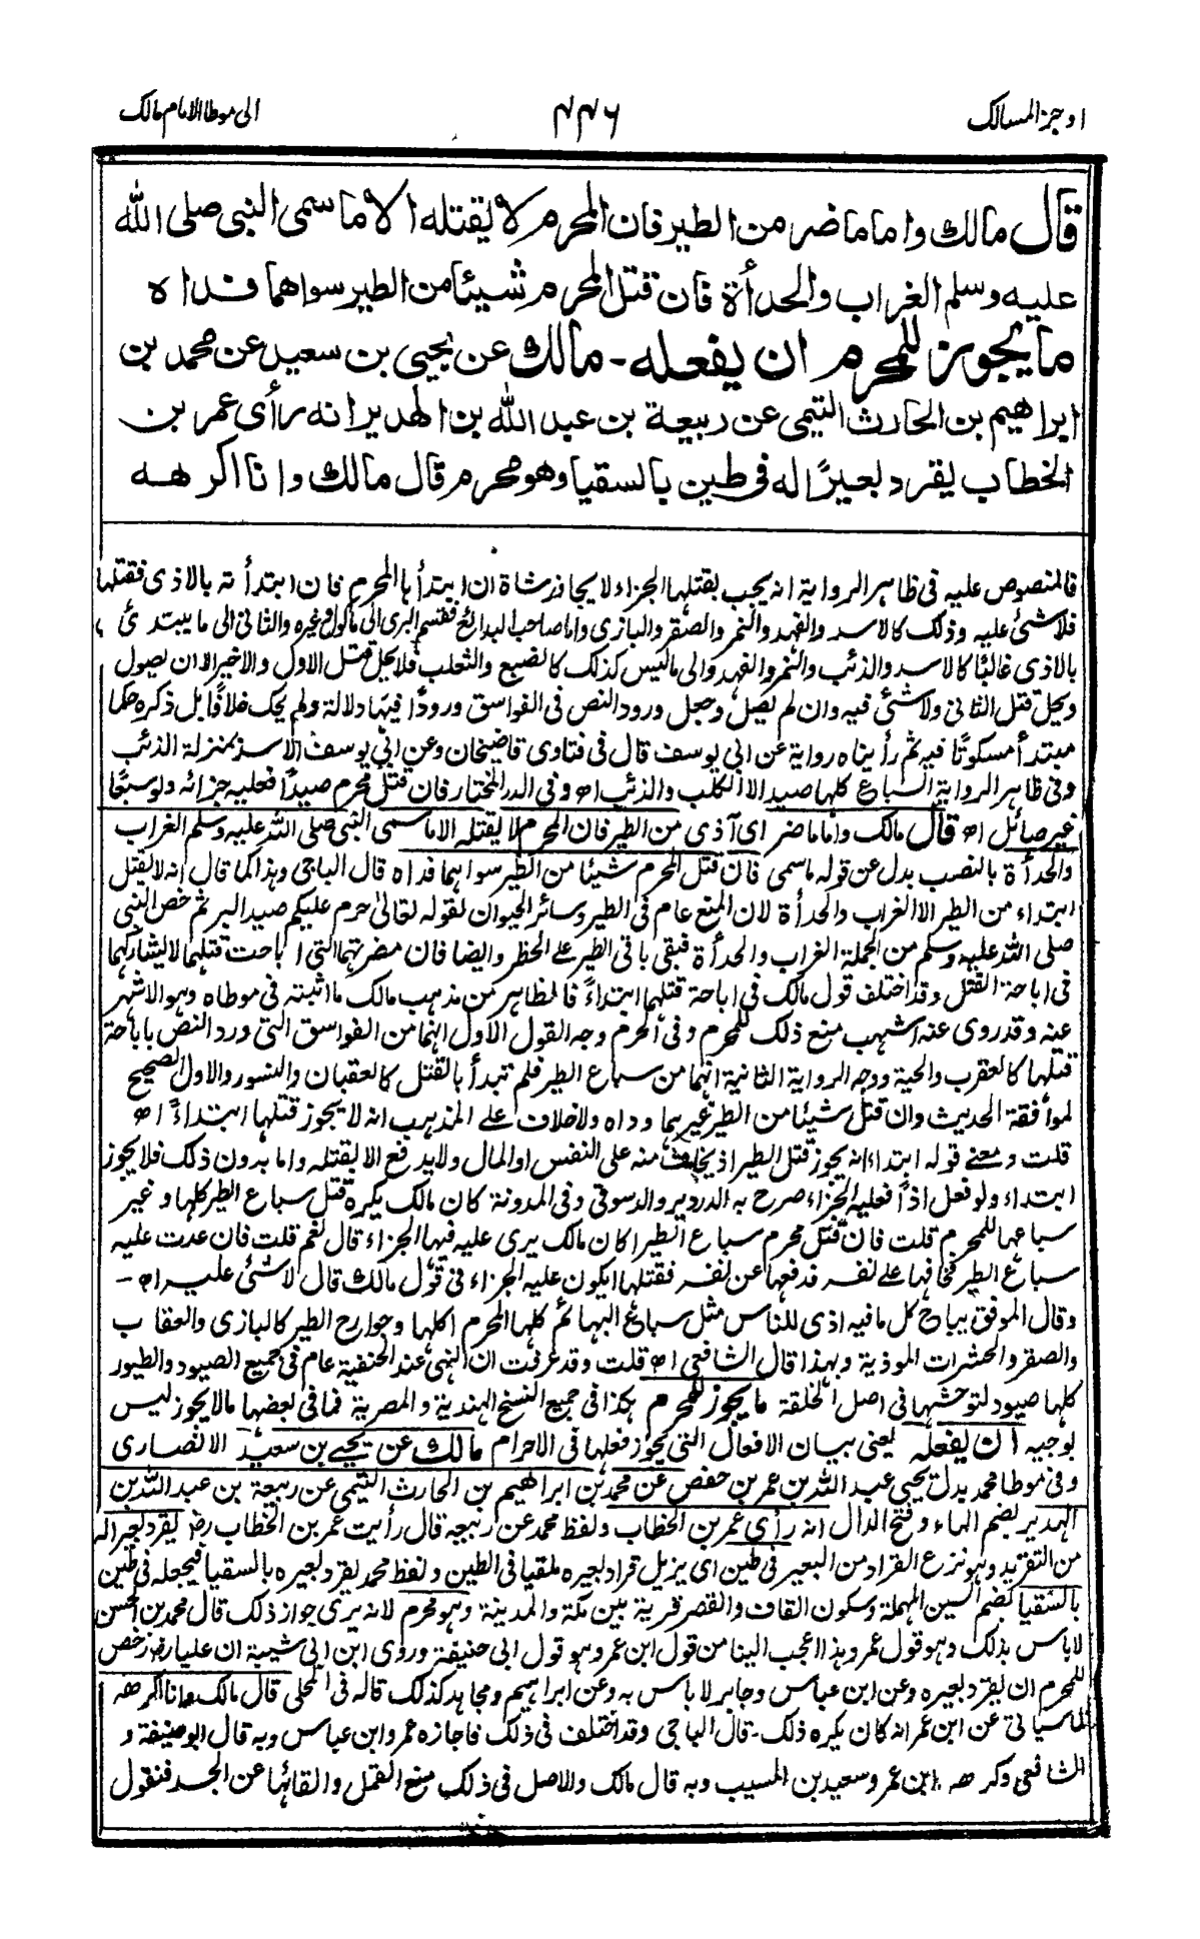 اوجز المسالك
٤٤٦
الى موطا الامام مالك
قال مالك واما ما ضر من الطير فان المحرم لا يقتله الا ما سمى النبى صلى الله
عليه وسلم الغراب والحدأة فان قتل المحرم شيئا من الطير سواهما فداه
ما يجوز للمحرم ان يفعله ـ مالك عن يحيى بن سعيد عن محمد بن
ابراهيم بن الحارث التيمى عن ربيعة بن عبد الله بن الهدير انه رأى عمر بن
الخطاب يقرد بعيرًا له فى طين بالسقيا وهو محرم قال مالك وانا اكرهه
فالمنصوص عليه فى ظاهر الرواية انه يجب بقتلها الجزاء لا يجاوز شاة ان ابتدأها المحرم فان ابتدأته بالاذى فقتلها
فلا شئ عليه وذلك كالاسد والفهد والنمر والصقر والبازى واما صاحب البدائع فقسم البرى الى ماكول وغيره والثانى الى ما يبتدئ
بالاذى غالبًا كالاسد والذئب والنمر والفهد والى ما ليس كذلك كالضبع والثعلب فلا يحل قتل الاول والاخير الا ان يصول
ويحل قتل الثانى ولا شئ فيه وان لم يصل وجعل ورود النص فى الفواسق ورودًا فيها دلالة ولم يحك خلافًا بل ذكره حكما
مبتدأ مسكوتًا فيه ثم رأيناه رواية عن ابى يوسف قال فى فتاوى قاضيخان وعن ابى يوسف الاسد بمنزلة الذئب
وفى ظاهر الرواية السباع كلها صيد الا الكلب والذئب اھ وفى الدر المختار فان قتل محرم صيدًا فعليه جزائه ولو سبعًا
غير صائل اھ قال مالك واما ما ضر اى آذى من الطير فان المحرم لا يقتله الا ما سمى النبى صلى الله عليه وسلم الغراب
والحدأة بالنصب بدل عن قوله ما سمى فان قتل المحرم شيئا من الطير سواهما فداه قال الباجى وهذا كما قال انه لا يقتل
ابتداء من الطير الا الغراب والحدأة لان المنع عام فى الطير وسائر الحيوان لقوله تعالى حرم عليكم صيد البر ثم خص النبى
صلى الله عليه وسلم من الجملة الغراب والحدأة فبقى باقى الطير على الحظر وايضا فان مضرتهما التى اباحت قتلهما لا يشاركهما
فى اباحة القتل وقد اختلف قول مالك فى اباحة قتلهما ابتداءً فالظاهر من مذهب مالك ما اثبته فى موطاه وهو الاشهر
عنه وقد روى عنه اشهب منع ذلك للمحرم وفى الحرم وجه القول الاول انهما من الفواسق التى ورد النص باباحة
قتلها كالعقرب والحية ووجه الرواية الثانية انهما من سباع الطير فلم تبدأ بالقتل كالعقبان والنسور والاول الصحيح
لموافقة الحديث وان قتل شيئا من الطير غيرهما وداه ولا خلاف على المذهب انه لا يجوز قتلها ابتداءً اھ
قلت ومعنى قوله ابتداء انه يجوز قتل الطير اذ يخاف منه على النفس او المال ولا يدفع الا بقتله واما بدون ذلك فلا يجوز
ابتداء ولو فعل اذًا فعليه الجزاء صرح به الدردير والدسوقى وفى المدونة كان مالك يكره قتل سباع الطير كلها وغير
سباعها للمحرم قلت فان قتل محرم سباع الطير اكان مالك يرى عليه فيها الجزاء قال نعم قلت فان عدت عليه
سباع الطير فخافها على نفسه فدفعها عن نفسه فقتلها ايكون عليه الجزاء فى قول مالك قال لا شئ عليه اھ ـ
وقال الموفق يباح كل ما فيه اذى للناس مثل سباع البهائم كلها المحرم اكلها وجوارح الطير كالبازى والعقاب
والصقر والحشرات الموذية وبهذا قال الشافعى اھ قلت وقد عرفت ان النهى عند الحنفية عام فى جميع الصيود والطيور
كلها صيود لتوحشها فى اصل الخلقة ما يجوز للمحرم هكذا فى جميع النسخ الهندية والمصرية فما فى بعضها ما لا يجوز ليس
بوجيه ان يفعله يعنى بيان الافعال التى يجوز فعلها فى الاحرام مالك عن يحيى بن سعيد الانصارى
وفى موطا محمد بدل يحيى عبد الله بن عمر بن حفص عن محمد بن ابراهيم بن الحارث التيمى عن ربيعة بن عبد الله بن
الهدير بضم الهاء وفتح الدال انه رأى عمر بن الخطاب ولفظ محمد عن ربيعة قال رأيت عمر بن الخطاب رض يقرد بعيرا له
من التقريد وهو نزع القراد من البعير فى طين اى يزيل قراد بعيره ملقيا فى الطين ولفظ محمد يقرد بعيره بالسقيا فيجعله فى طين
بالسقيا بضم السين المهملة وسكون القاف والقصر قرية بين مكة والمدينة وهو محرم لانه يرى جواز ذلك قال محمد بن الحسن
لا باس بذلك وهو قول عمر وهذا اعجب الينا من قول ابن عمر وهو قول ابى حنيفة وروى ابن ابى شيبة ان عليا رض رخص
للمحرم ان يقرد بعيره وعن ابن عباس وجابر لا باس به وعن ابراهيم ومجاهد كذلك قاله فى المحلى قال مالك وانا اكرهه
لما سيأتى عن ابن عمر انه كان يكره ذلك ـ قال الباجى وقد اختلف فى ذلك فاجازه عمر وابن عباس وبه قال ابو حنيفة و
الشافعى وكرهه ابن عمر وسعيد بن المسيب وبه قال مالك والاصل فى ذلك منع القمل والقائها عن الجسد فنقول